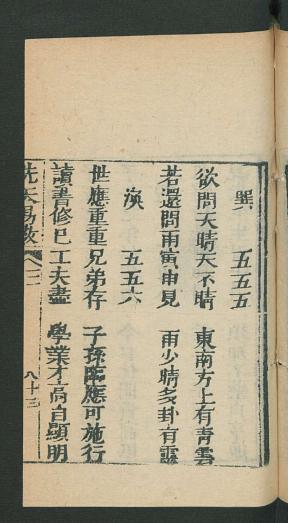 巽 五五五
欲問天晴天不晴 東南方上有青雲
若還問雨寅申見 雨少晴多卦有靈
渙 五五六
世應重重兄弟存 子孫臨應可施行
讀書修已工夫盡 學業才高自顯明
先天易數 卷二 八十三